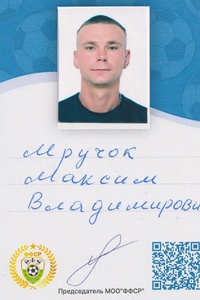 Мручок
Максим
Владимирови
ФФСР
Председатель МОО"ФФСР"